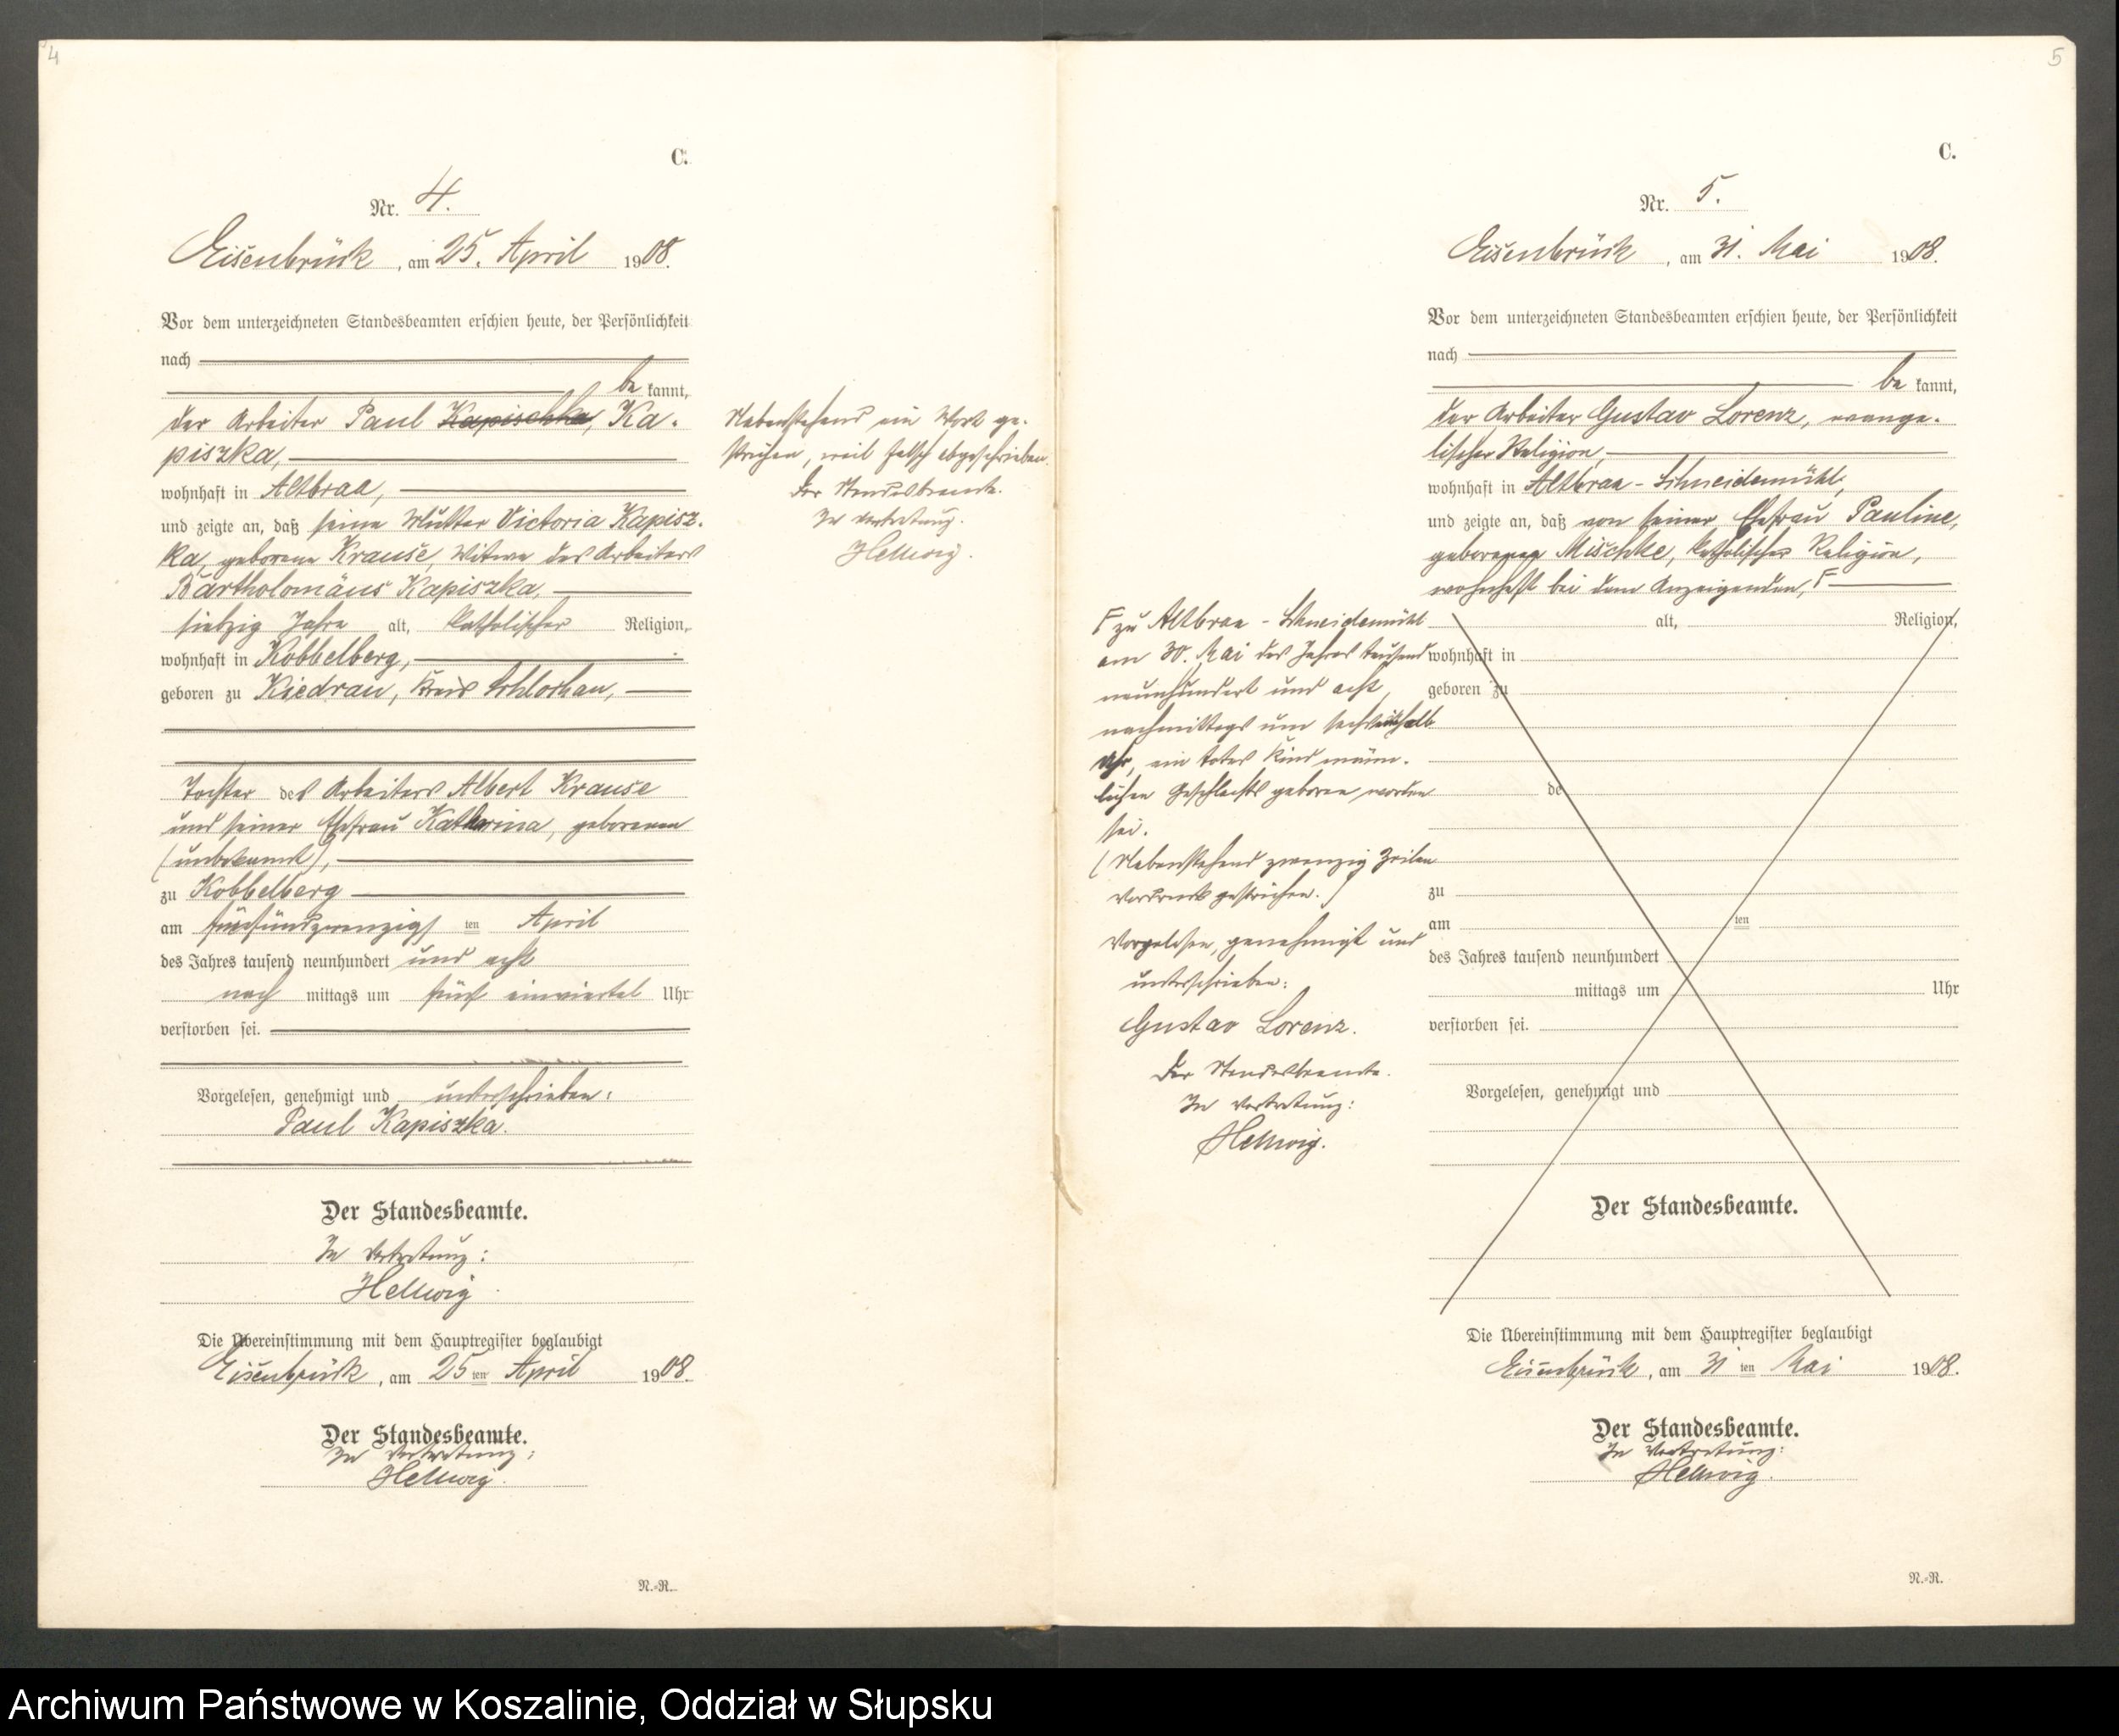 4
C.
Nr. 4.
Eisenbrück, am 25. April 1908.
Vor dem unterzeichneten Standesbeamten erschien heute, der Persönlichkeit
nach
be kannt,
der Arbeiter Paul Kapischka, Ka-
piszka,
wohnhaft in Altbraa,
und zeigte an, daß seine Mutter Victoria Kapisz-
ka, geborene Krause, Witwe des Arbeiters
Bartholomäus Kapiszka,
siebzig Jahre alt, katholischer Religion,
wohnhaft in Kobbelberg,
geboren zu Kiedrau, Kreis Schlochau,
Tochter des Arbeiters Albert Krause
und seiner Ehefrau Katharina, geborenen
(unbekannt),
zu Kobbelberg
am fünfundzwanzigsten April
des Jahres tausend neunhundert und acht
nach mittags um fünf einviertel Uhr
verstorben sei.
Vorgelesen, genehmigt und unterschrieben:
Paul Kapiszka.
Der Standesbeamte.
In Vertretung:
Hellwig
Die Übereinstimmung mit dem Hauptregister beglaubigt
Eisenbrück, am 25ten April 1908.
Der Standesbeamte.
In Vertretung:
Hellwig.
N.-R.
Nebenstehend ein Wort ge-
strichen, weil falsch abgeschrieben.
Der Standesbeamte.
In Vertretung.
Hellwig.
5
C.
Nr. 5.
Eisenbrück, am 31. Mai 1908.
Vor dem unterzeichneten Standesbeamten erschien heute, der Persönlichkeit
nach
be kannt,
der Arbeiter Gustav Lorenz, evange-
lischer Religion,
wohnhaft in Altbraa-Schneidemühl,
und zeigte an, daß von seiner Ehefrau Pauline,
geborenen Mischke, katholischer Religion,
wohnhaft bei dem Anzeigenden, F
F zu Altbraa-Schneidemühl
am 30. Mai des Jahres tausend
neunhundert und acht,
nachmittags um sechseinhalb
Uhr, ein totes Kind männ-
lichen Geschlechts geboren worden
sei.
(Nebenstehend zwanzig Zeilen
Vordruck gestrichen.)
Vorgelesen, genehmigt und
unterschrieben:
Gustav Lorenz.
Der Standesbeamte.
In Vertretung:
Hellwig.
alt, Religion,
wohnhaft in
geboren zu
de
zu
am ten
des Jahres tausend neunhundert
mittags um Uhr
verstorben sei.
Vorgelesen, genehmigt und
Der Standesbeamte.
Die Übereinstimmung mit dem Hauptregister beglaubigt
Eisenbrück, am 31ten Mai 1908.
Der Standesbeamte.
In Vertretung:
Hellwig.
N.-R.
Archiwum Państwowe w Koszalinie, Oddział w Słupsku